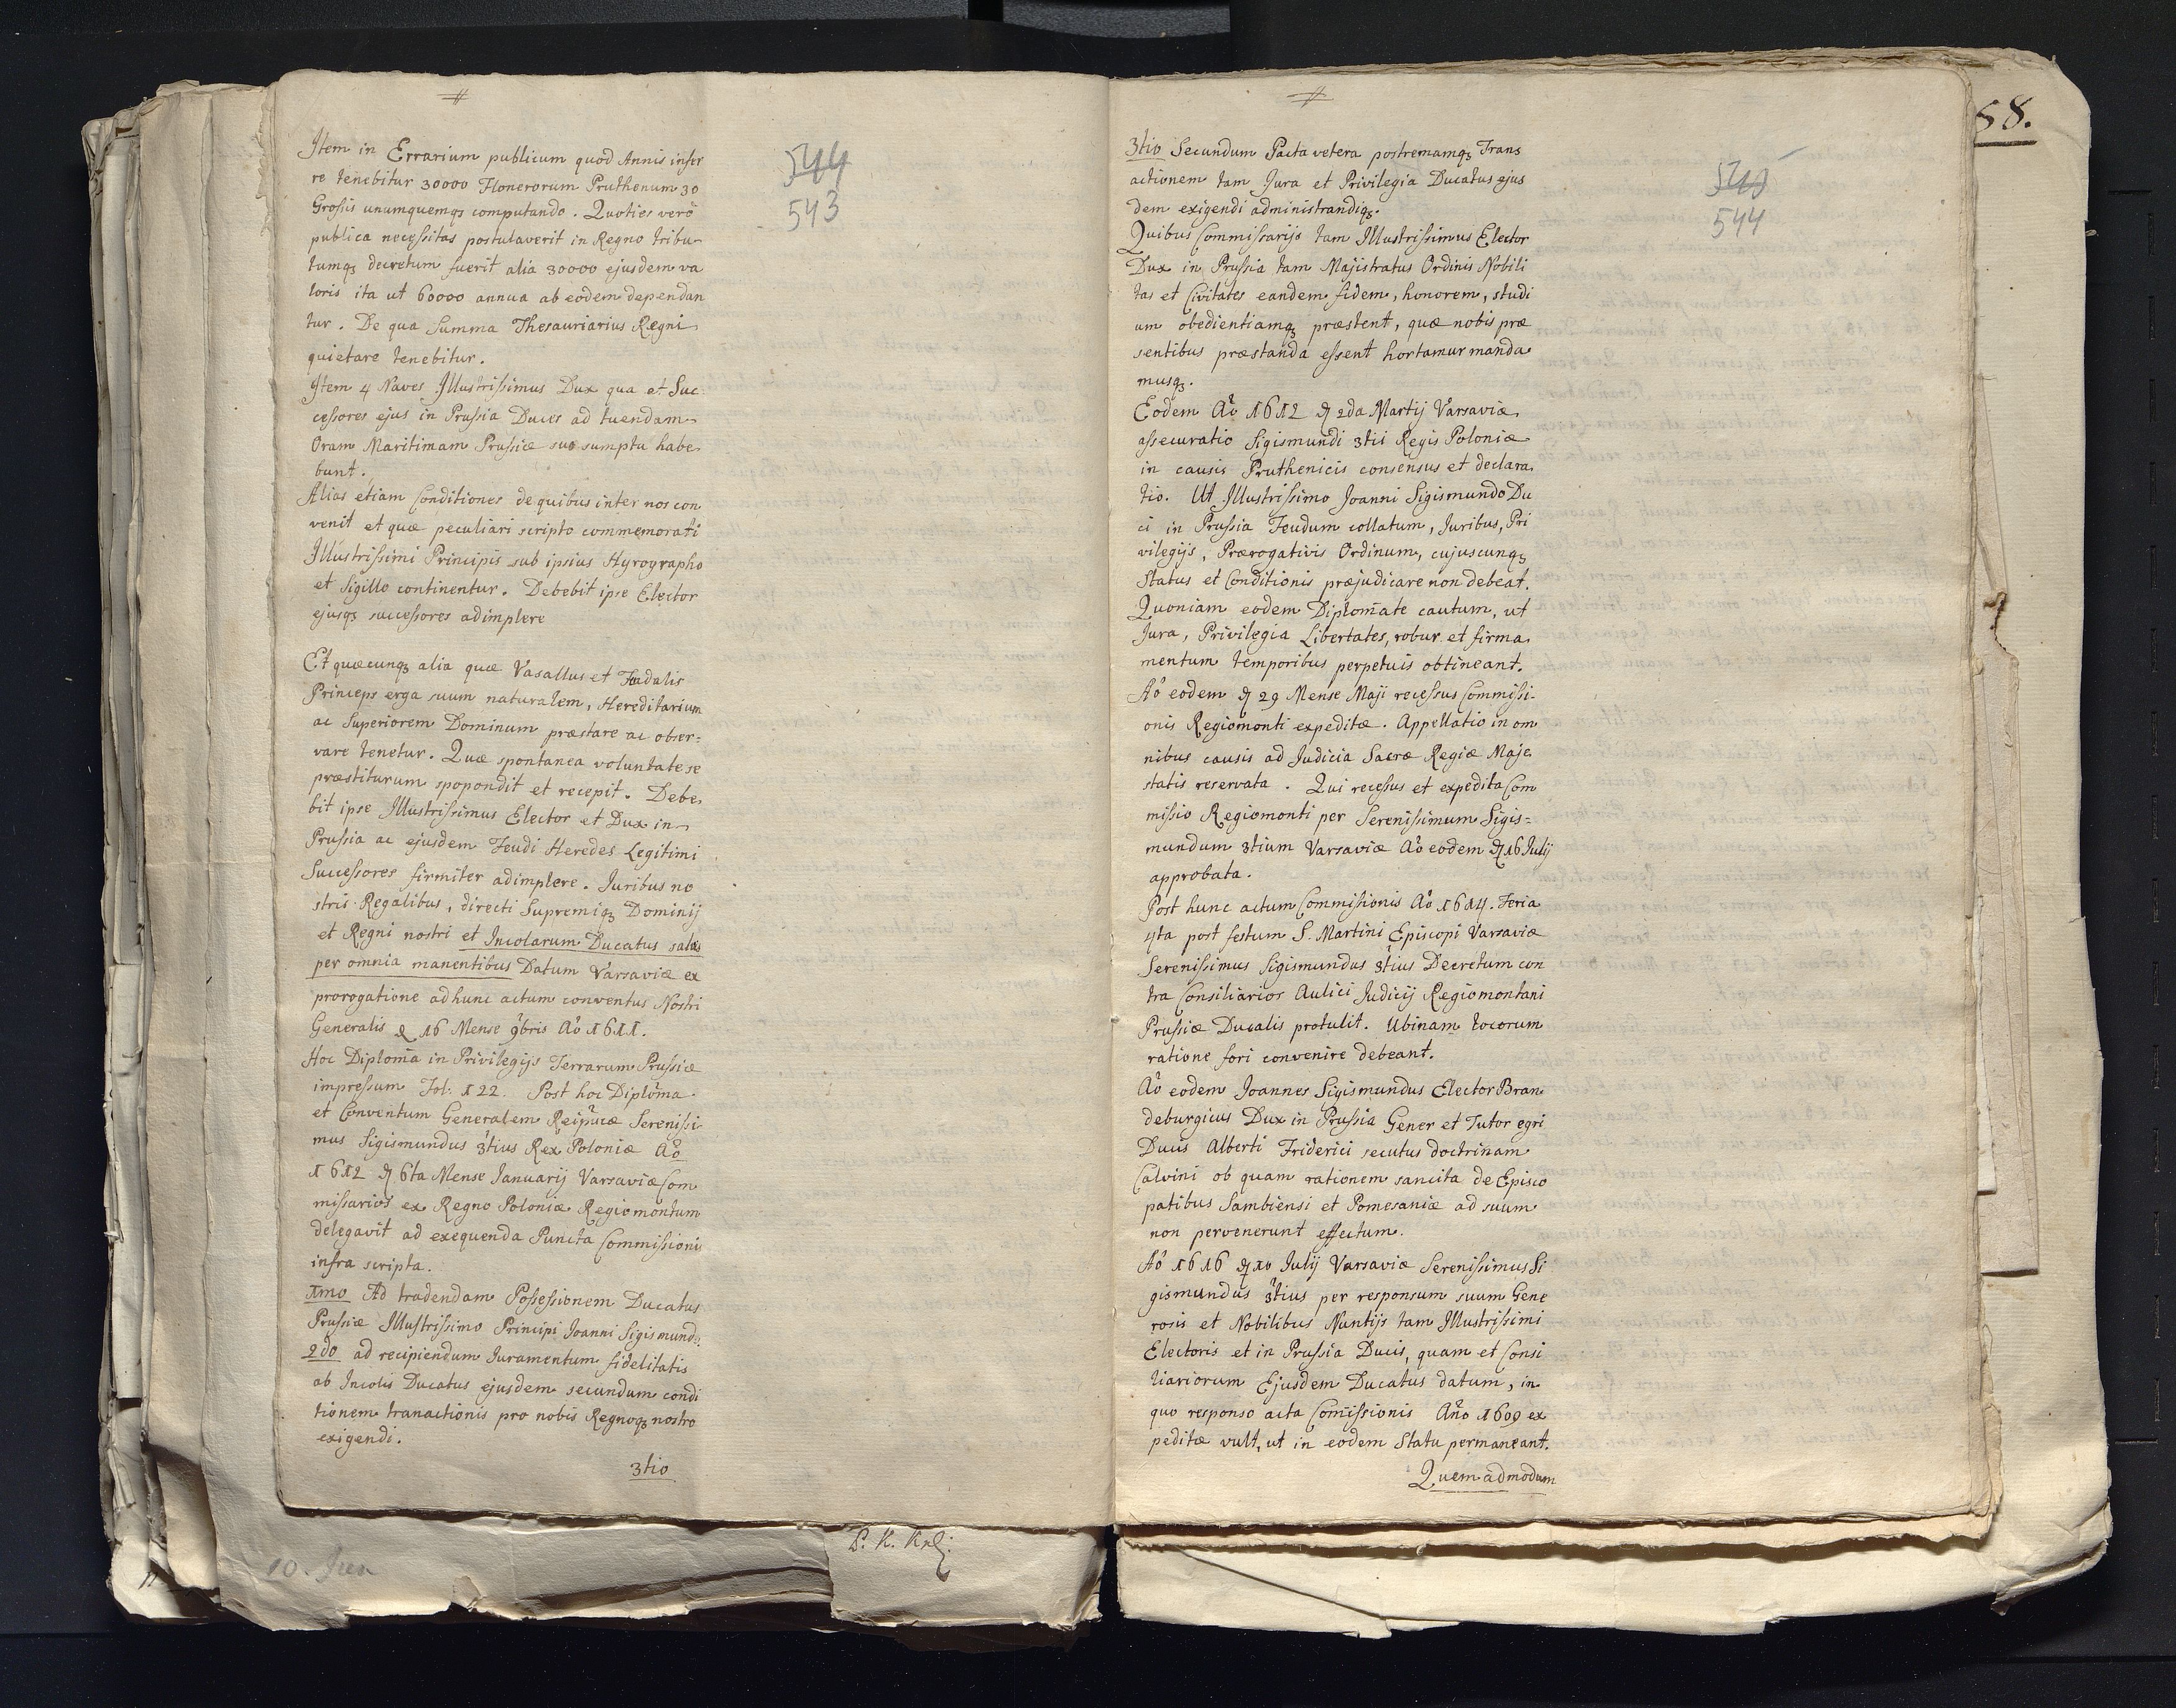 Item in Errarium publicum quod Annis infer
re tenebitur 30000 Florenorum Pruthenum 30
Grossis unumquemqꝫ computando. Quoties verò
publica necessitas postulaverit in Regno tribu
tumqꝫ decretum fuerit alia 30000 ejusdem va
loris ita ut 60000 annua ab eodem dependan
tur. De qua Summa Thesauriarius Regni
quietare tenebitur.
Item 4 Naves Illustrissimus Dux qua et Suc
cessores ejus in Prussia Duces ad tuendam
Oram Maritimam Prussiæ suo sumptu habe
bunt.
Alias etiam Conditiones de quibus inter nos con
venit et quæ peculiari scripto commemorati
Illustrissimi Principis sub ipsius Hyrographo
et Sigillo continentur. Debebit ipse Elector
ejusqꝫ successores adimplere
Et quæcunqꝫ alia quæ Vasallus et Feudalis
Princeps erga suum naturalem, Hereditarium
ac Superiorem Dominum præstare ac obser=
vare tenetur. Quæ spontanea voluntate se
præstiturum spopondit et recepit. Debe
bit ipse Illustrissimus Elector et Dux in
Prussia ac ejusdem Feudi Heredes Legitimi
Successores firmiter adimplere. Juribus no
stris Regalibus, directi Supremiqꝫ Dominij
et Regni nostri et Incolarum Ducatus salvis
per omnia manentibus Datum Varsaviæ ex
prorogatione ad hunc actum conventus Nostri
Generalis d 16 Mense 9bris Aô 1611.
Hoc Diploma in Privilegijs Terrarum Prussiæ
impressum Fol: 122. Post hoc Diploma
et Conventum Generalem Reipucæ Serenissi
mus Sigismundus 3tius Rex Poloniæ Aô
1612 d 6ta Mense Januarij Varsaviæ Com
missarios ex Regno Poloniæ Regiomontum
delegavit ad exequenda Puncta Commissionis
infra scripta.
1mo Ad tradendam Possessionem Ducatus
Prussiæ Illustrissimo Principi Joanni Sigismund:
2do ad recipiendum Juramentum fidelitatis
ab Incolis Ducatus ejusdem secundum condi
tionem tranactionis pro nobis Regnoqꝫ nostro
exigendi.
3tio
544
543
P. K. Krl:
10. Jun
3tio Secundum Pacta vetera postremamqꝫ Trans
actionem tam Jura et Privilegia Ducatus ejus
dem exigendi administrandiqꝫ.
Quibus Commissarijs tam Illustrissimus Elector
Dux in Prussia tam Majistratus Ordinis Nobili
tas et Civitates eandem fidem, honorem, studi
um obedientiamqꝫ præstent, quæ nobis præ
sentibus præstanda essent hortamur manda
musqꝫ.
Eodem Aô 1612 d 2da Martij Varsaviæ
assecuratio Sigismundi 3tii Regis Poloniæ
in causis Pruthenicis consensus et declara
tio. Ut Illustrissimo Joanni Sigismundo Du
ci in Prussia Feudum collatum, Juribus, Pri
vilegijs, Prærogativis Ordinum, cujuscunqꝫ
Status et Conditionis præjudicare non debeat.
Quoniam eodem Diplomate cautum, ut
Jura, Privilegia Libertates, robur et firma
mentum temporibus perpetuis obtineant.
Aô eodem d 29 Mense Maji recessus Commissi
onis Regiomonti expeditæ. Appellatio in om
nibus causis ad Judicia Sacræ Regiæ Maje
statis reservata. Qui recessus et expedita Com
missio Regiomonti per Serenissimum Sigis=
mundum 3tium Varsaviæ Aô eodem d 16 Julij
approbata.
Post hunc actum Commissionis Aô 1614. Feria
4ta post festum S. Martini Episcopi Varsaviæ
Serenissimus Sigismundus 3tius Decretum con
tra Consiliarios Aulici Judicij Regiomontani
Prussiæ Ducalis protulit. Ubinam locorum
ratione fori convenire debeant.
Aô eodem Joannes Sigismundus Elector Bran
deburgicus Dux in Prussia Gener et Tutor egri
Ducis Alberti Friderici secutus doctrinam
Calvini ob quam rationem sancita de Episco
patibus Sambiensi et Pomesaniæ ad suum
non pervenerunt effectum.
Aô 1616 d 10 Julij Varsaviæ Serenissimus Si
gismundus 3tius per responsum suum Gene
rosis et Nobilibus Nuntijs tam Illustrissimi
Electoris et in Prussia Ducis, quam et Consi
liariorum Ejusdem Ducatus datum, in
quo responso acta Comissionis Año 1609 ex
peditæ vult, ut in eodem Statu permaneant.
Quemadmodum
544
58.